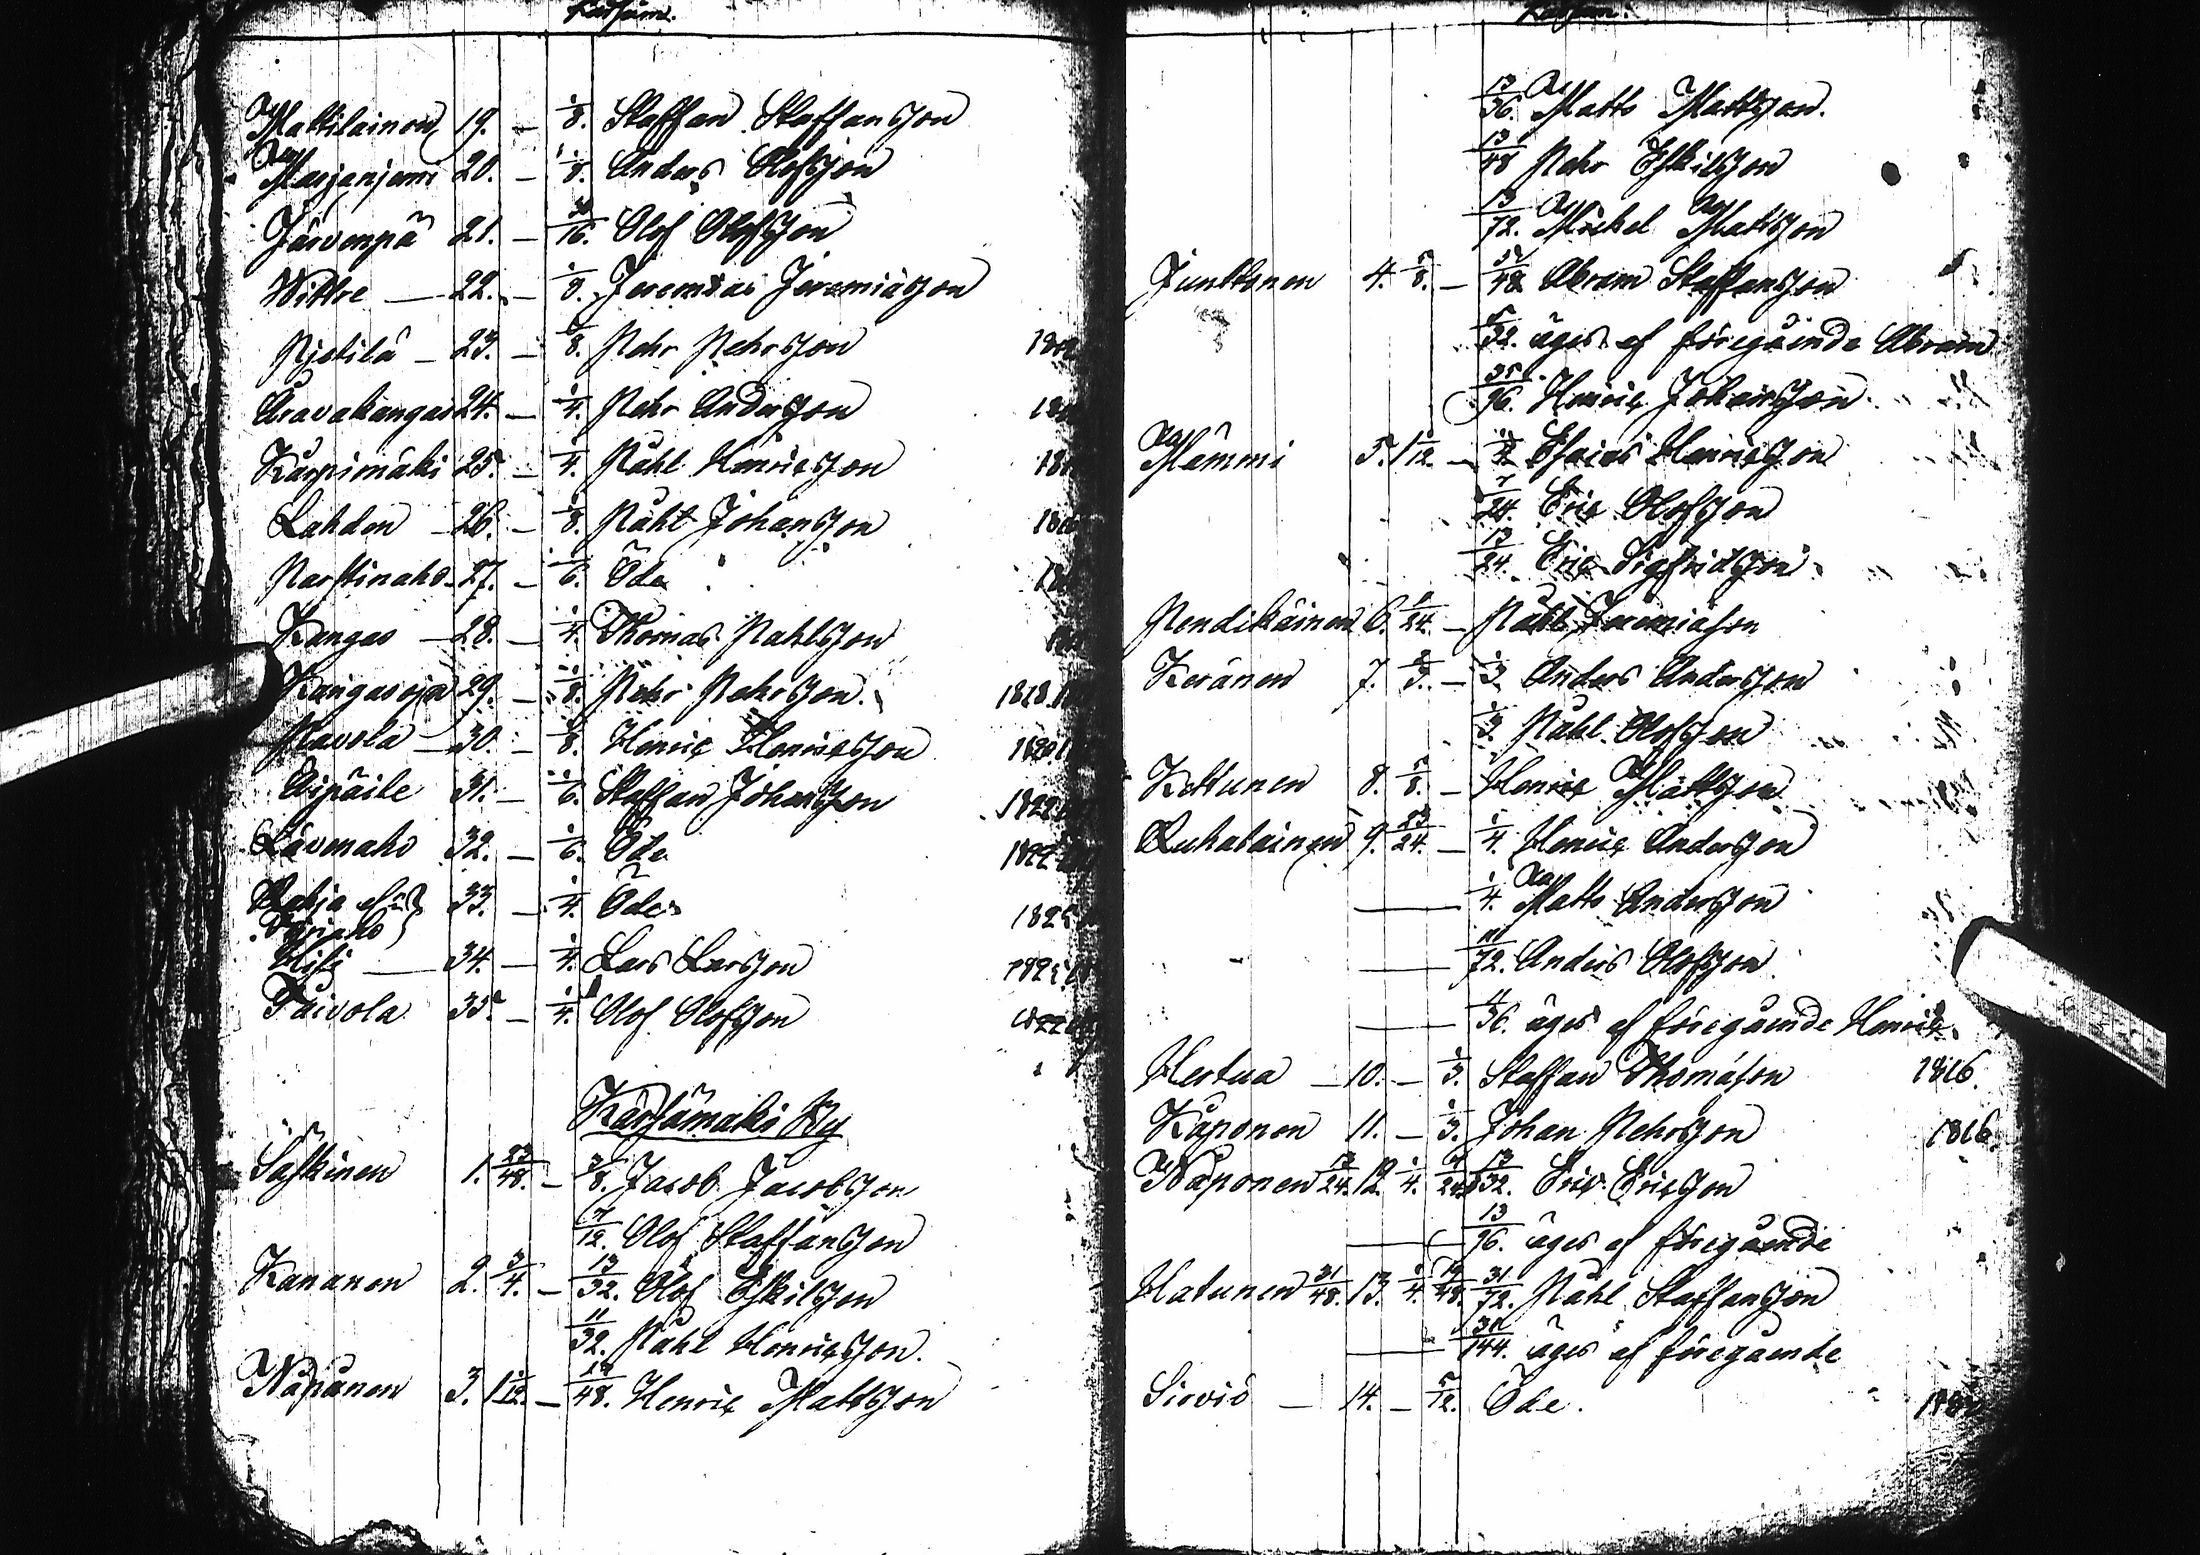 Mattilainen 19. — 1/8. Staffan Staffansson
Marjanjemi 20. — 1/8. Anders Olofsson
Järvenpä 21. — /16. Olof Olofsson
Wittre — 22. — 1/8. Jeremias Jeremiasson
Pjetilä — 23. — 1/8. Pehr Pehrsson
Aravakangas 24. — 1/4. Pehr Andersson
Karpimäki 25. — 1/4. Påhl Henricsson
Lahden — 26. — 1/8. Påhl Johansson
27. — 1/6. Öde
Kangas — 28. — 1/4. Thomas Pahlsson
Kangasoja 29. — 1/8. Pehr Pehrsson. 1818
Pavola — 30. — 1/8. Henric Henricsson 1820
31. — 1/6. Staffan Johansson 1822
32. — 1/6. Öde 1822
33. — 1/4. Öde 1825
Hihi — 34. — 1/4. Lars Larsson 1825
Taivola 35. — 1/4. Olof Olofsson
Kärsämäki By
Säskinen 1. 23/48. — 3/8. Jacob Jacobsson
7/12. Olof Staffansson
Kananen 2. 3/4. — 13/32. Olof Eskilsson
11/32. Påhl Henricsson.
Näpänen 3. 1 1/12. — 19/48. Henric Mattsson
13/36. Matts Mattsson.
13/48 Pehr Eskilsson
13/72. Mickel Mattsson
Junttonen 4. 5/8. — 5/48 Abram Staffansson
5/32. äges af föregående Abram
35/96. Henric Johansson
Mämmi 5. 1 1/12. — Esaias Henricsson
7/24. Eric Olofsson
13/24. Eric Sigfridsson
Pendikäinen 6. 1/24. — Påhl Jeremiasson
Keränen 7. 2/3. — 1/3. Anders Andersson
1/3. Påhl Olofsson
Kettunen 8. 5/8. — Henric Mattsson
Luhalainen 9. 23/24. — 1/4. Henric Andersson
— 1/4. Matts Andersson
— /72. Anders Olofsson
— /36. äges af föregående Henric.
Hertua — 10. — 1/3. Staffan Thomasson 1816.
Kaponen 11. — 1/3. Johan Pehrsson 1816.
Näponen 13/24. 12. 1/4. 7/24. 13/32. Eric Ericsson
— 13/96. äges af föregående
Hatunen 31/48. 13. 1/4. 19/48. 31/72. Påhl Staffansson
— 31/144. äges af föregående
Sirviö — 14. — 5/12. Öde.